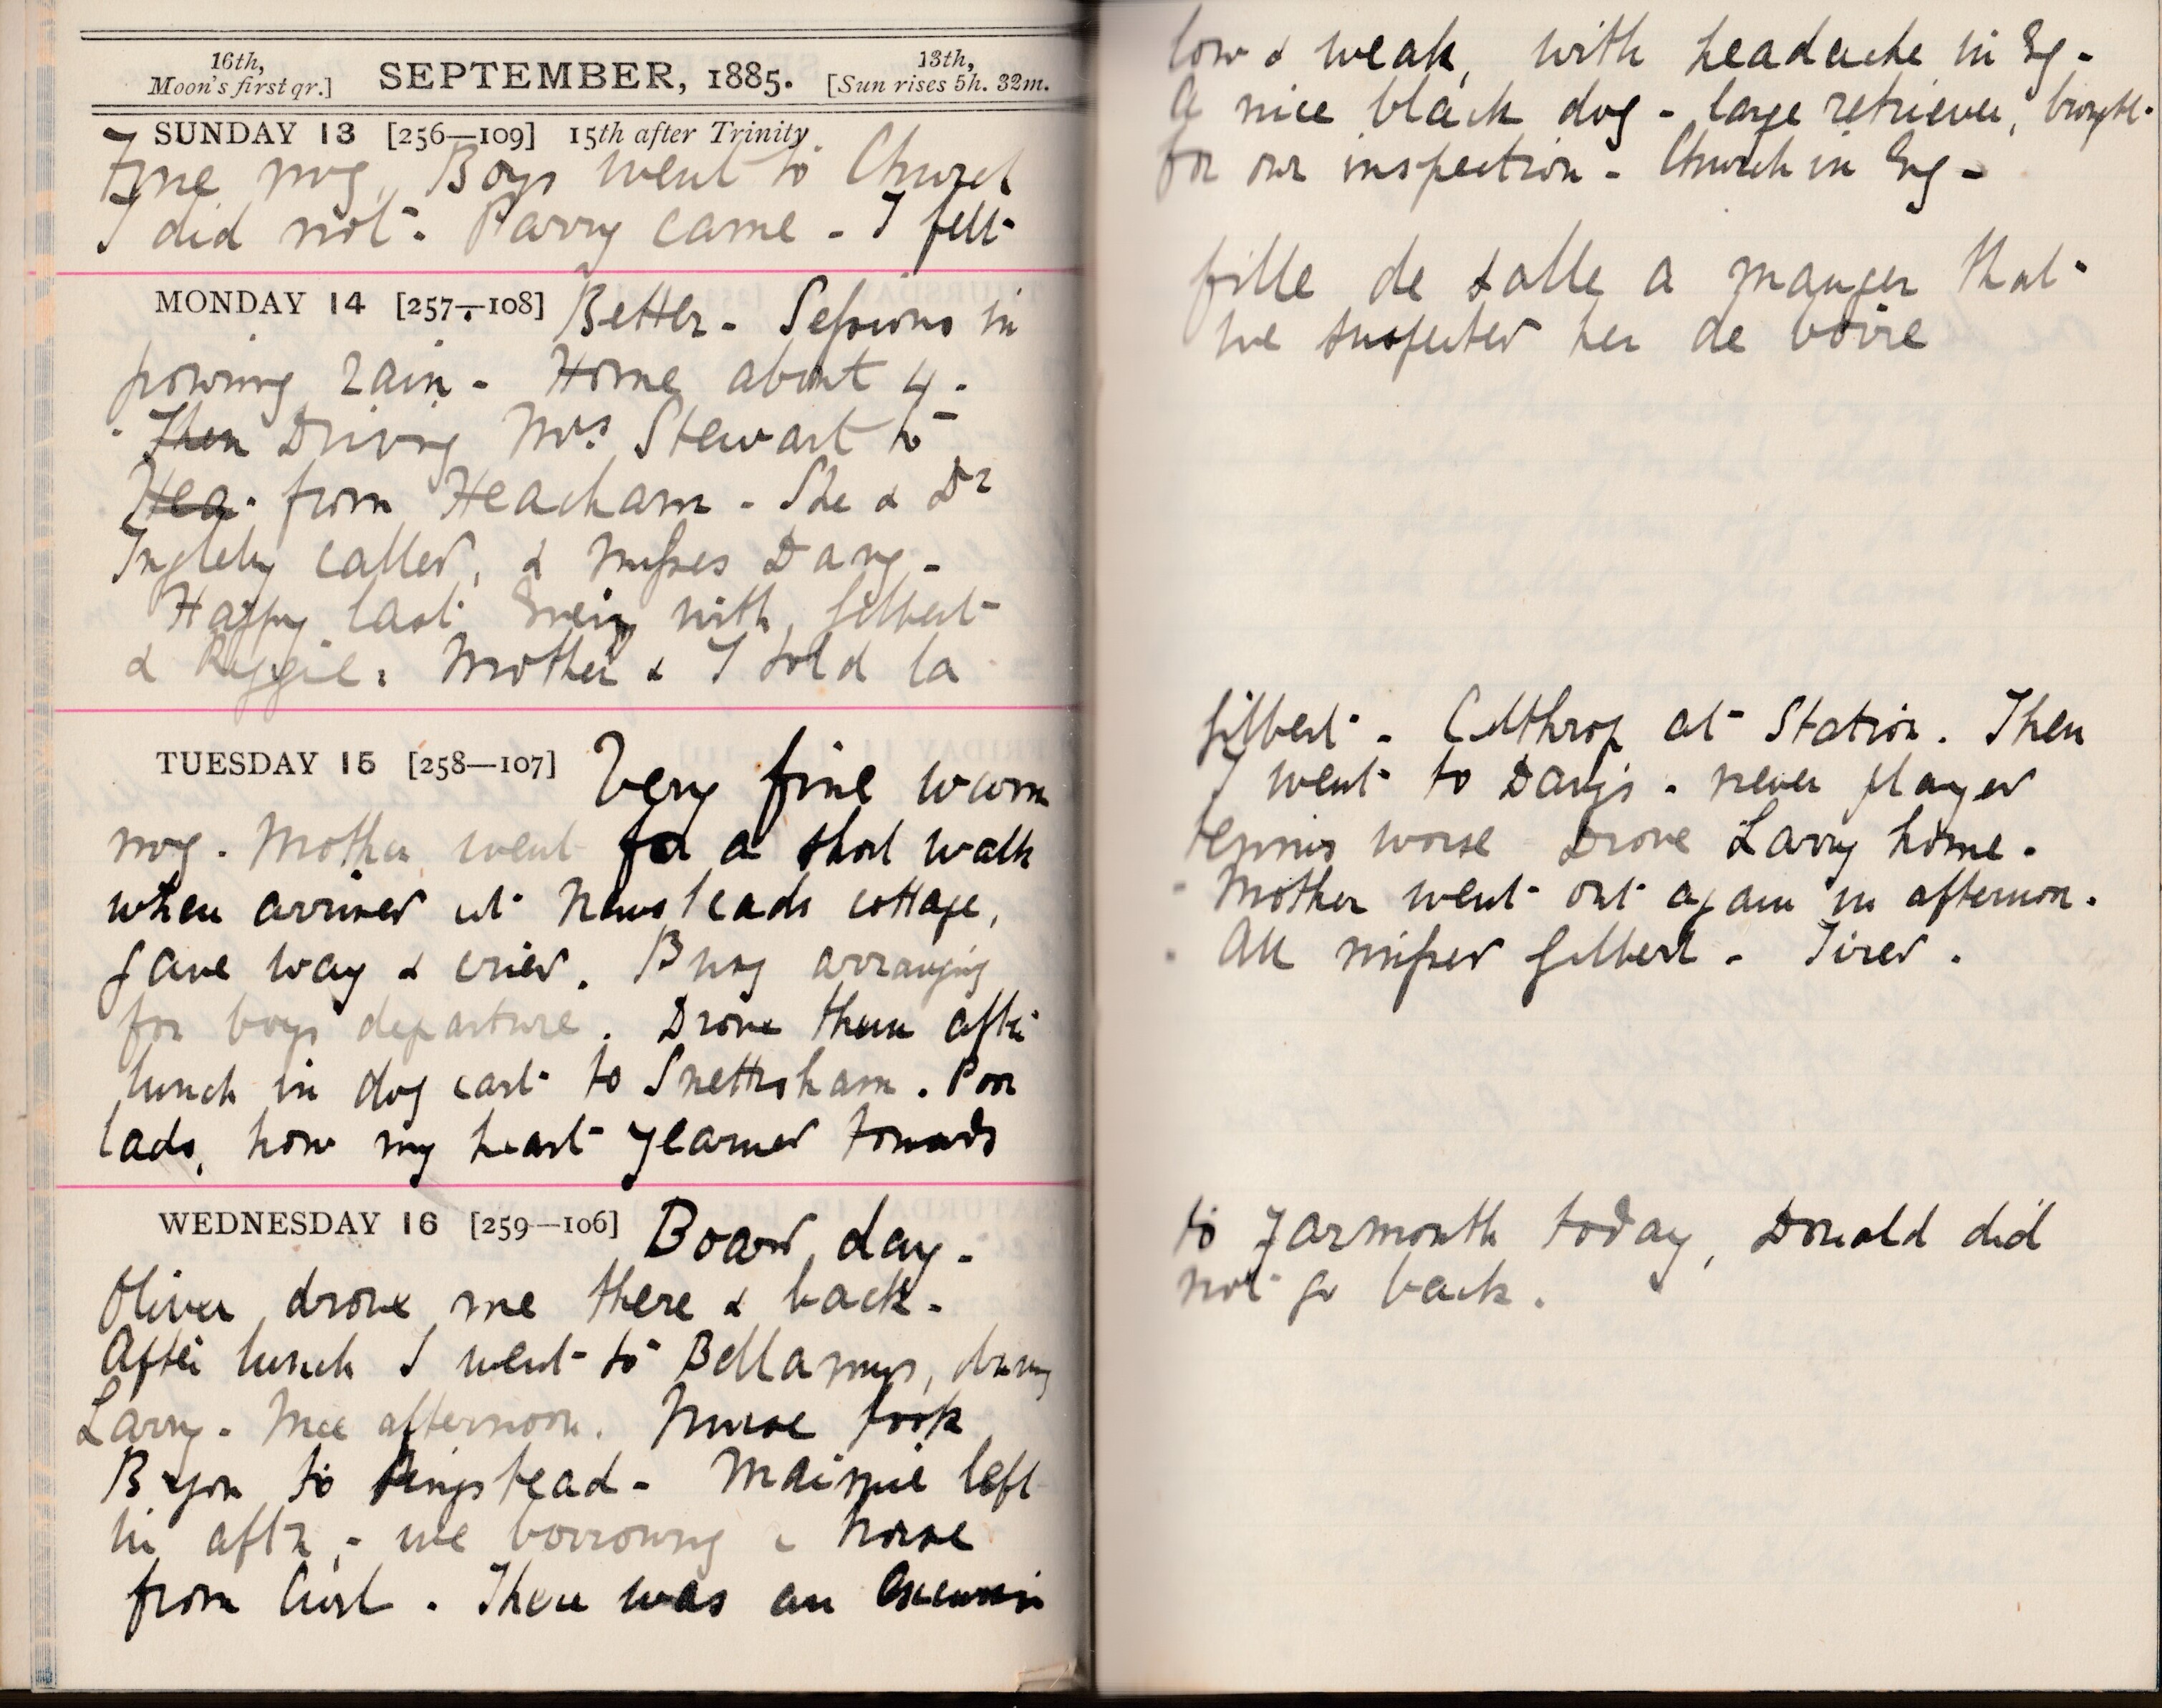 16th,
Moon's first qr.]
SEPTEMBER, 1885.
13th,
[Sun rises 5h. 32m.
SUNDAY 13 [256—109] 15th after Trinity
Fine mg. Boys went to Church
I did not. Parry came - I felt
low & weak, with headache in Eg -
A nice black dog - large retriever, brought
for our inspection - Church in Eg -
MONDAY 14 [257—108] Better - Sessions in
pouring rain - Home about 4.
Then Driving Mrs Stewart to
Hea from Heacham - She & Dr
Ingleby called, & Misses Davy -
Happy last Eveng with Gilbert
& Reggie. Mother & I told la
fille de salle a manger that
we suspected her de boire
TUESDAY 15 [258—107] Very fine warm
mg. Mother went for a short walk
when arrived at Newsteads cottage,
gave way & cried. Busy arranging
for boys departure. Drove them after
lunch in dog cart to Snettisham. Poor
lads, how my heart yearned towards
Gilbert - Calthrop at Station. Then
I went to Davys - never played
tennis worse Drove Larry home.
Mother went out again in afternoon.
All missed Gilbert - Tired.
WEDNESDAY 16 [259—106] Board day -
Oliver drove me there & back -
After lunch I went to Bellamys, driving
Larry - Nice afternoon. Nurse took
Byon to Ringstead - Maimie left
in aftn, - we borrowing a horse
from Curl. There was an Excursion
to Yarmouth today, Donald did
not go back.